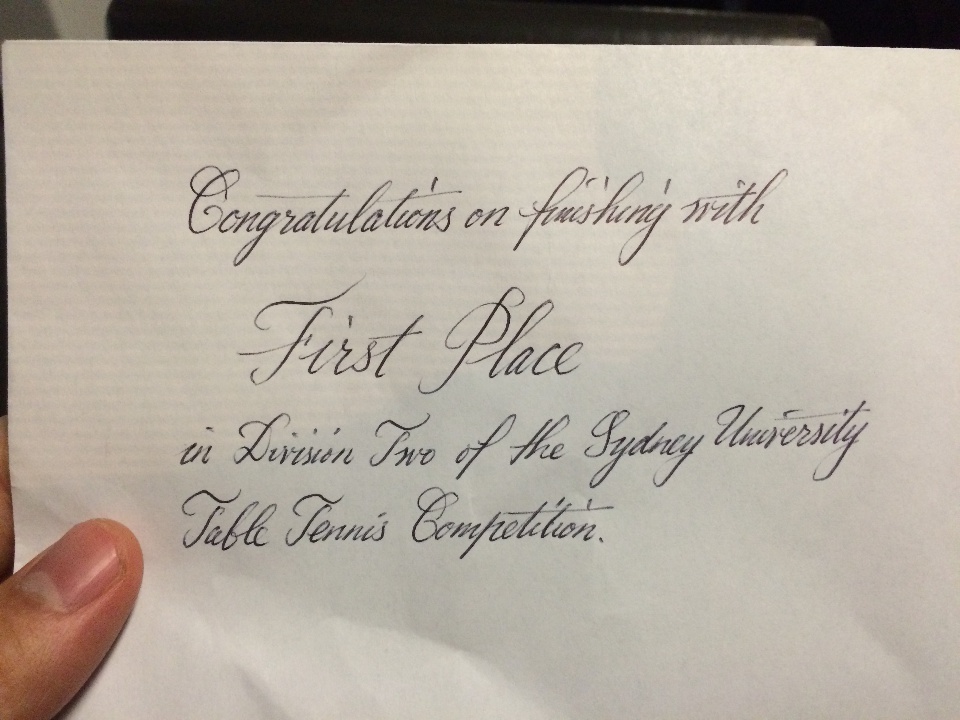 Congratulations on finishing with
First Place
in Division Two of the Sydney University
Table Tennis Competition.